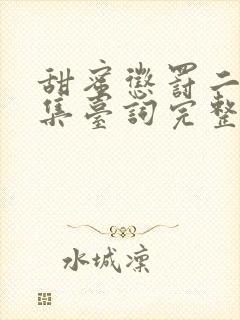 甜蜜懲罰二
集臺詞完整
水城凜